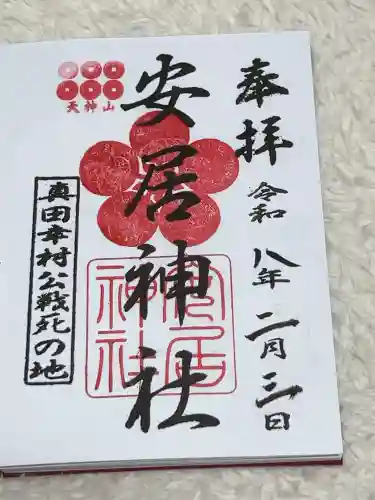 奉拝
令和八年二月三日
安居神社
天神山
真田幸村公戦死の地
安居神社